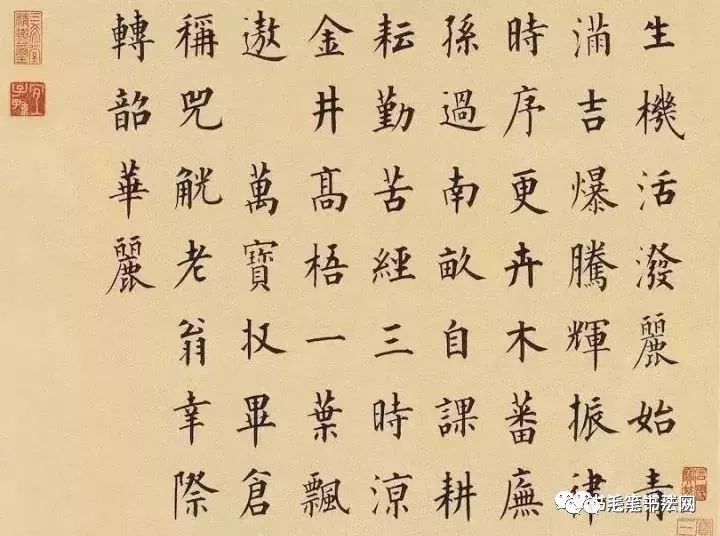 生機活潑麗始青
滿吉爆騰輝振律
時序更卉木蕃廡
孫過南畝自課耕
耘勤苦經三時涼
金井髙梧一葉飄
遨 萬寶収畢倉
稱兕觥老翁幸際
轉韶華麗
三希堂精鑑璽
宜子孫
毛笔书法网